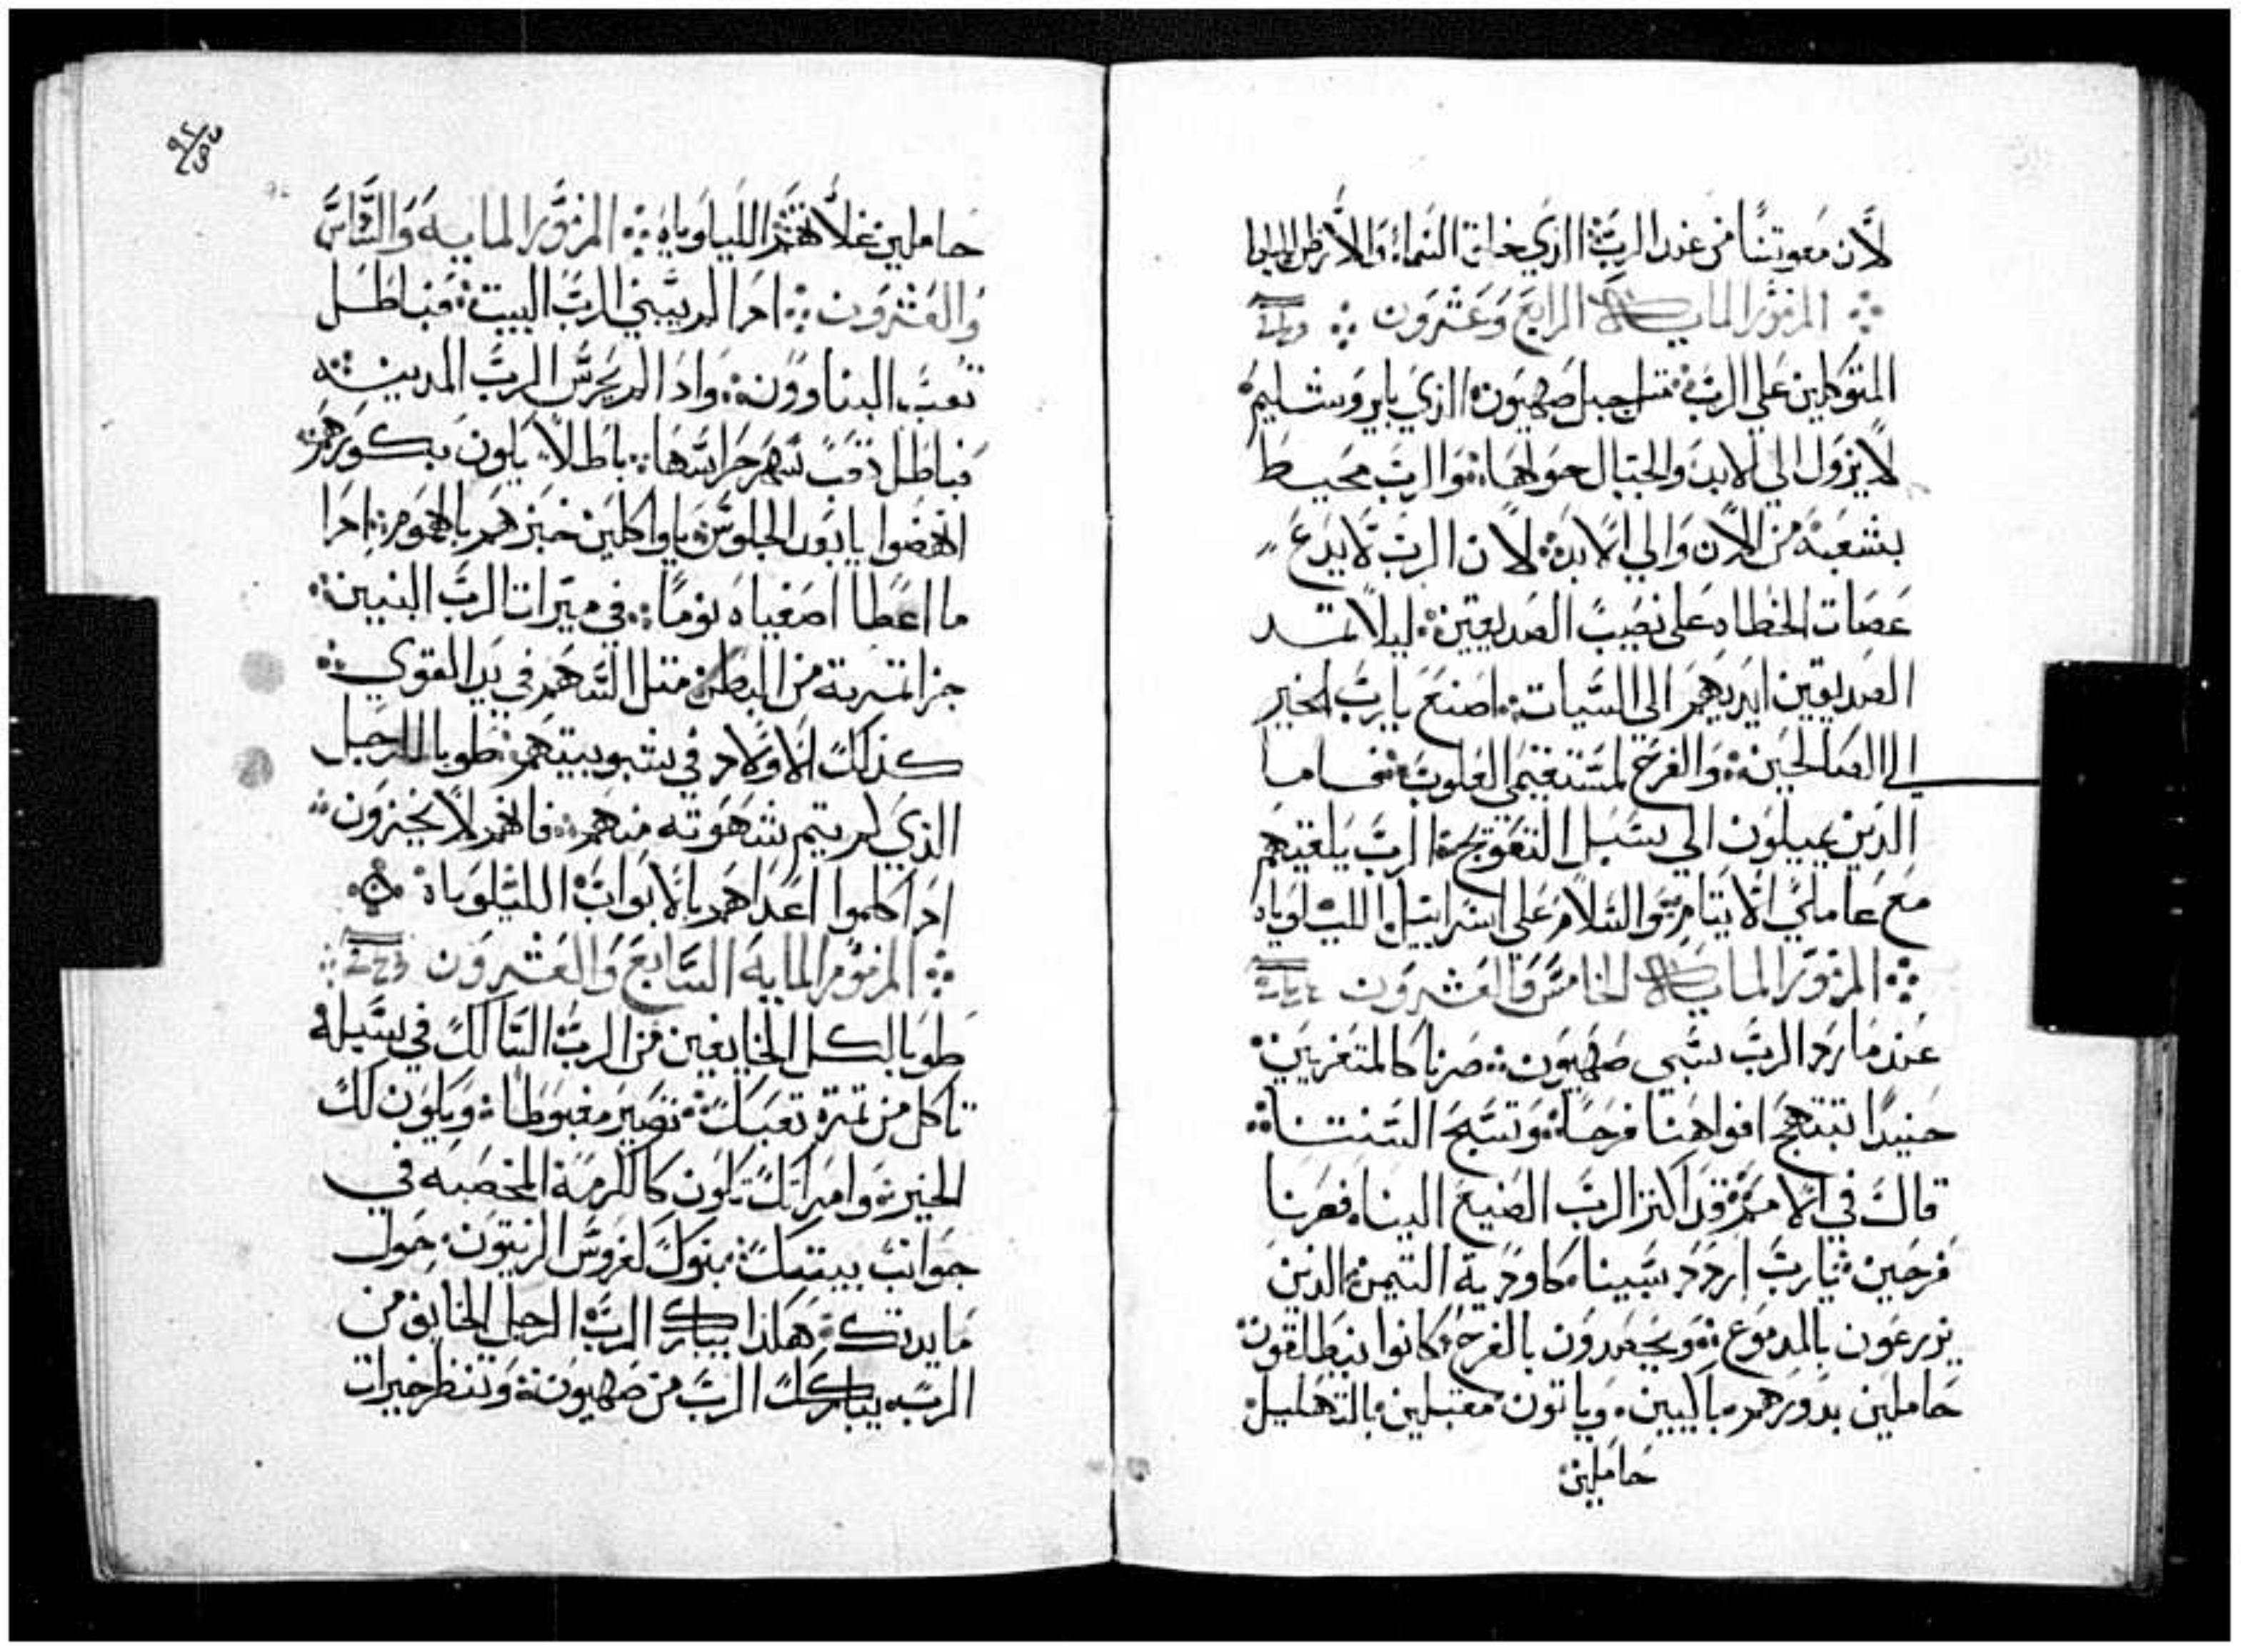 لان معونتنا من عند الرب الذي خلق السماء والارض الليلويا
المزمور المايه الرابع وعشرون
المتوكلين علي الرب مثل جبل صهيون الذي بايروشليم
لا يزول الي الابد والجبال حولها والرب محيط
بشعبه من الان والي الابد لان الرب لا يدع
عصات الخطاه علي نصيب الصديقين ليلا تمتد
الصديقين ايديهم الي السيات اصنع يارب الخير
الي الصالحين والفرح لمستقيمي القلوب فاما
الذين يميلون الي سبل التعوج الرب يلقيهم
مع عاملي الاتام والسلام علي اسراييل الليلوياه
المزمور المايه الخامس والعشرون
عندما رد الرب سبي صهيون صرنا كالمتعزيين
حنيدا تبتهج افواهنا فرحا وتسبح السنتنا
قالت في الامم قد اكثر الرب الصنيع الينا فصرنا
فرحين يارب اردد سبينا كاودية التيمن الذين
يزرعون بالدموع ويحصدون بالفرح كانوا ينطلقون
حاملين بدورهم باكيين وياتون مقبلين بالتهليل
حاملين
حاملين غلاتهم الليلوياه المزمور المايه والسادس
والعشرون ادا لم يبني الرب البيت فباطل
تعب البناوون وادا لم يحرس الرب المدينه
فباطل تعب سهر حراسها باطلا يكون بكوركم
انهضوا يا بعد الجلوس يا واكلين خبزهم بالهموم ادا
ما اعطا اصفياه نوما في ميرات الرب البنين
جزا تمرية من البطن متل السهم في يد القوي
كذلك الاولاد في شبوبيتهم طوبا للرجل
الذي لم يتم شهوته منهم فانهم لا يخزون
ادا كلموا اعداهم بالابواب الليلوياه
المزمور المايه السابع والعشرون
طوبا لكل الخايفين من الرب السالك في سبله
تاكل من تمرة تعبك تصير مغبوطا ويكون لك
الخير وامراتك تكون كالكرمة المخصبه في
جوانب بيتك بنوك لغروس الزيتون حول
مايدتك هكذا يبارك الرب الرجل الخايف من
الرب يباركك الرب من صهيون وتنظر خيرات